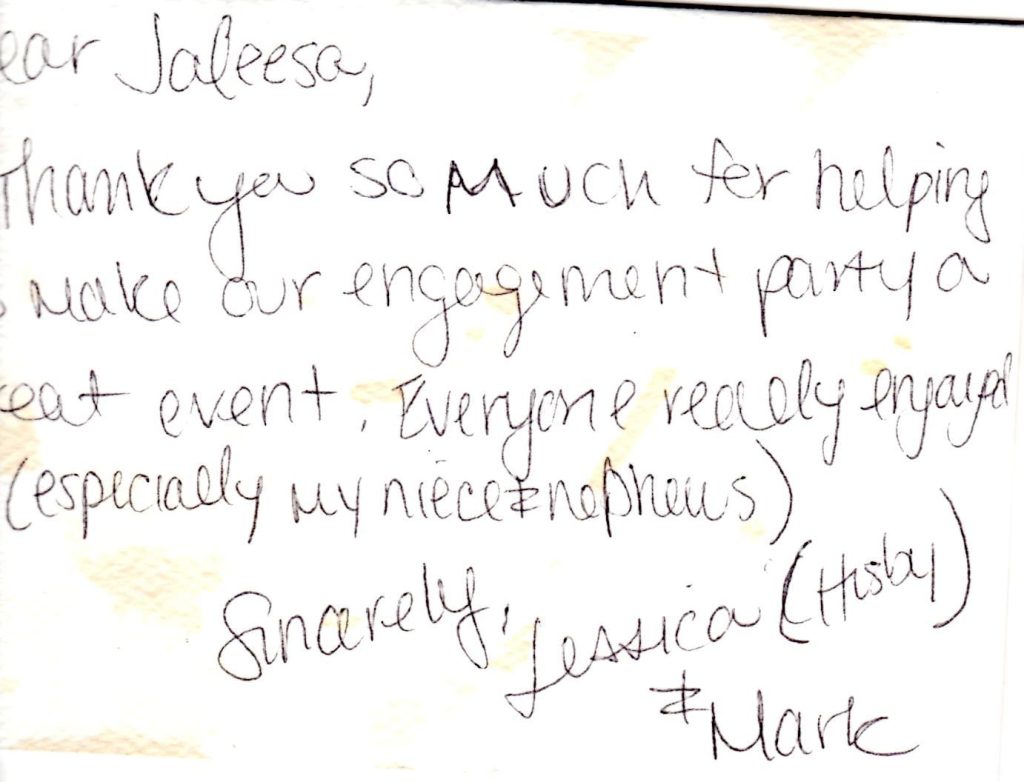 ear Jaleesa,
Thank you so much for helping
make our engagement party a
eat event. Everyone really enjoyed
(especially my niece & nephews)
Sincerely, Jessica (Hisby)
& Mark